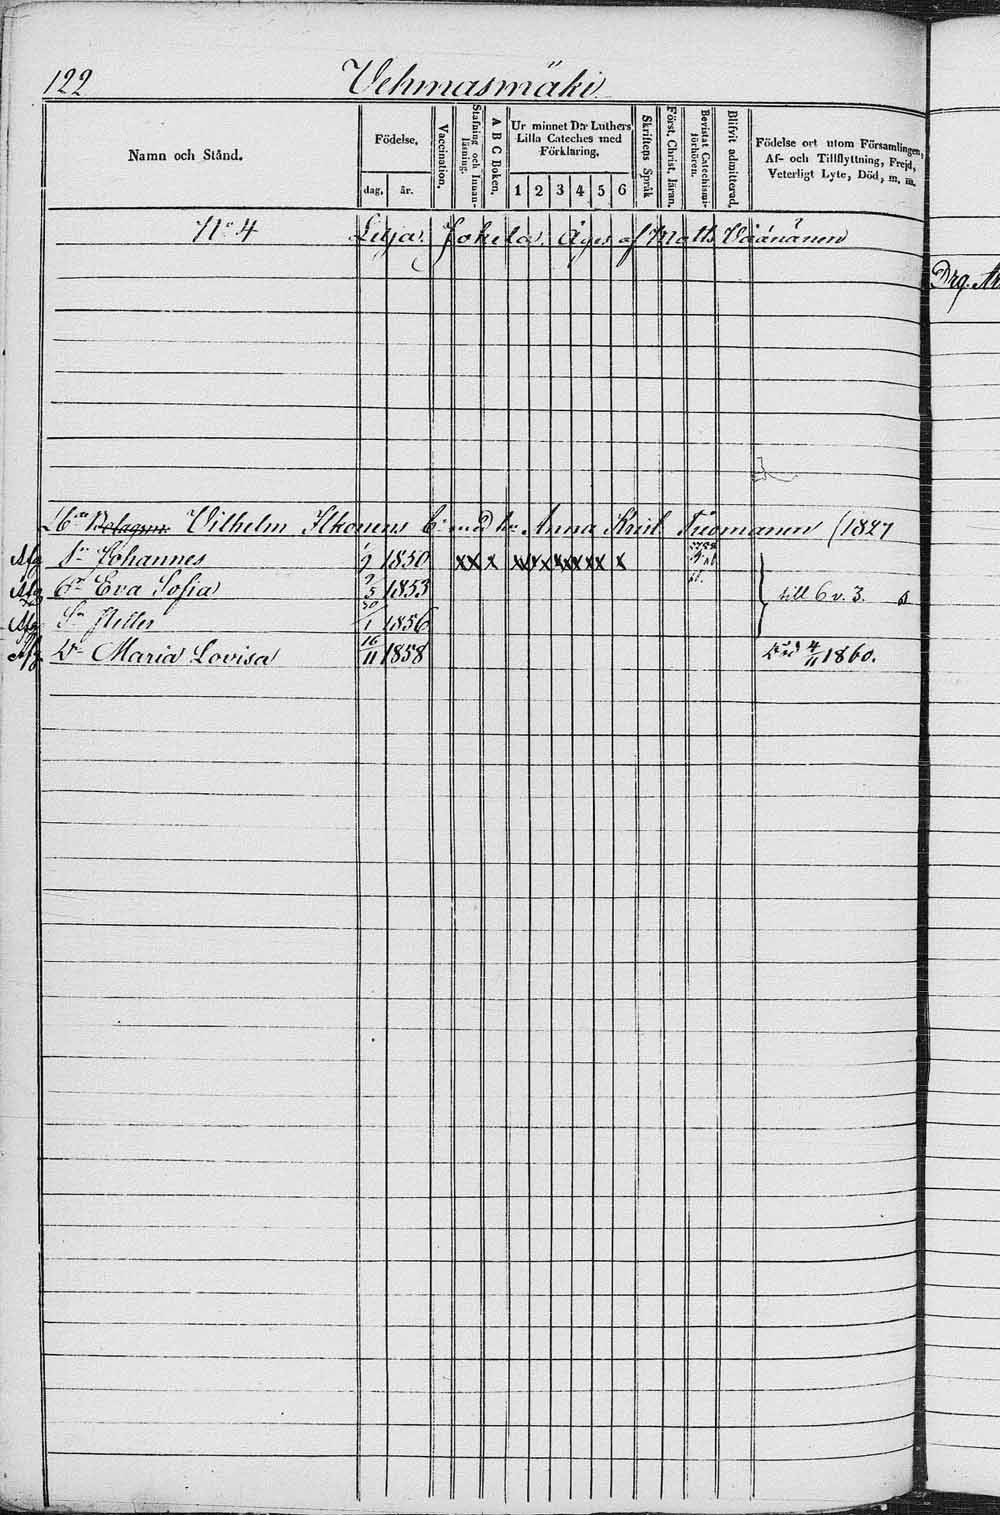 122 Vehmasmäki
Namn och Stånd.
Födelse.
dag. år.
Vaccination.
Stafning och Innanläsning.
A B C Boken.
Ur minnet D:r Luthers
Lilla Cateches med
Förklaring.
1 2 3 4 5 6
Skriftens Språk
Först. Christ. läran.
Bevistat Catechismiförhören.
Blifvit admitterad.
Födelse ort utom Församlingen,
Af- och Tillflyttning, Frejd,
Veterligt Lyte, Död, m. m.
No 4 Jokela. Äges af Matts Väänänen
Vilhelm Ilkonens med Anna 1827
Afg Sn Johannes 1850 x x x x x x x
Afg Dr Eva Sofia 1853 till 6 v. 3.
Afg Sn 30/1 1856
Afg Dr Maria Lovisa 16/11 1858 död 4/11 1860.
Drg.